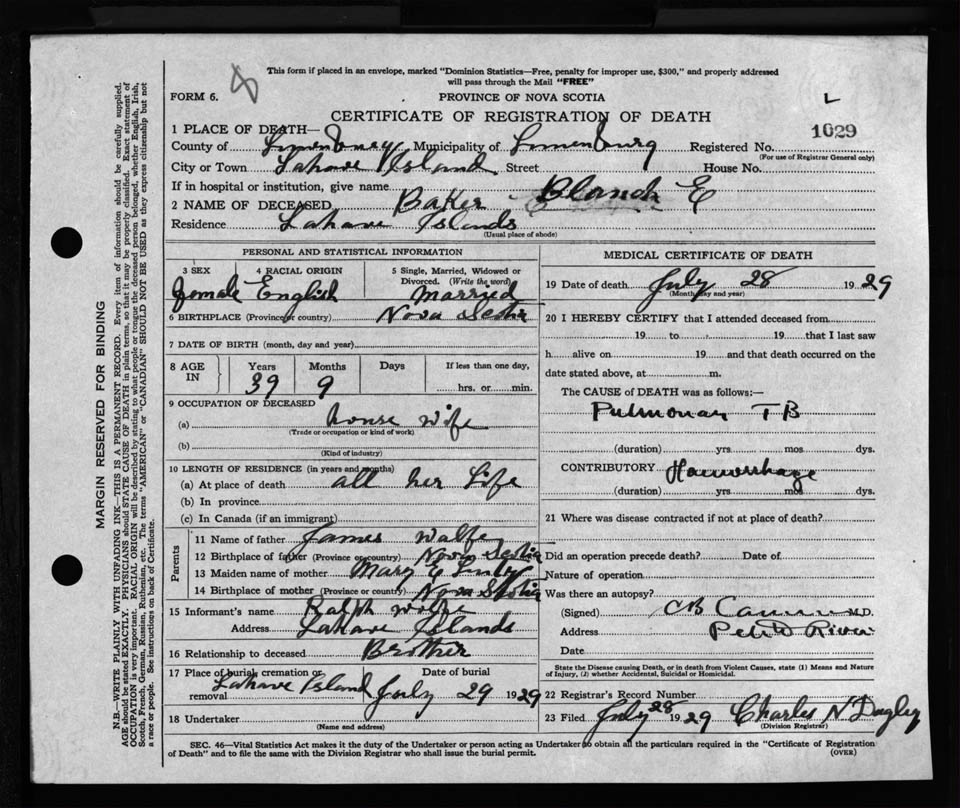 8
This form if placed in an envelope, marked "Dominion Statistics—Free, penalty for improper use, $300," and properly addressed
will pass through the Mail "FREE"
FORM 6.
PROVINCE OF NOVA SCOTIA
L
CERTIFICATE OF REGISTRATION OF DEATH
1029
1 PLACE OF DEATH—
County of Lunenburg Municipality of Lunenburg Registered No.
(For use of Registrar General only)
City or Town Lahave Island Street House No.
If in hospital or institution, give name
2 NAME OF DECEASED Baker Blanch E
Residence Lahave Islands
(Usual place of abode)
PERSONAL AND STATISTICAL INFORMATION
3 SEX 4 RACIAL ORIGIN 5 Single, Married, Widowed or Divorced. (Write the word)
Female English Married
6 BIRTHPLACE (Province or country) Nova Scotia
7 DATE OF BIRTH (month, day and year)
8 AGE IN Years Months Days If less than one day,
39 9 hrs. or min.
9 OCCUPATION OF DECEASED
(a) house wife
(Trade or occupation or kind of work)
(b)
(Kind of industry)
10 LENGTH OF RESIDENCE (in years and months)
(a) At place of death all her Life
(b) In province
(c) In Canada (if an immigrant)
Parents
11 Name of father James Walfe
12 Birthplace of father (Province or country) Nova Scotia
13 Maiden name of mother Mary E
14 Birthplace of mother (Province or country) Nova Scotia
15 Informant's name Ralph Wolfe
Address Lahave Islands
16 Relationship to deceased Brother
17 Place of burial, cremation or removal Date of burial
Lahave Island July 29 1929
18 Undertaker
(Name and address)
MEDICAL CERTIFICATE OF DEATH
19 Date of death July 28 1929
(Month, day and year)
20 I HEREBY CERTIFY that I attended deceased from
19 to 19 that I last saw
h alive on 19 and that death occurred on the
date stated above, at m.
The CAUSE of DEATH was as follows:—
Pulmonary TB
(duration) yrs mos dys.
CONTRIBUTORY Haemorrhage
(duration) yrs mos dys.
21 Where was disease contracted if not at place of death?
Did an operation precede death? Date of
Nature of operation
Was there an autopsy?
(Signed) CB M.D.
Address Petite River
Date
State the Disease causing Death, or in death from Violent Causes, state (1) Means and Nature
of Injury, (2) whether Accidental, Suicidal or Homicidal.
22 Registrar's Record Number
23 Filed July 28 1929 Charles N Dagley
(Division Registrar)
SEC. 46—Vital Statistics Act makes it the duty of the Undertaker or person acting as Undertaker to obtain all the particulars required in the "Certificate of Registration
of Death" and to file the same with the Division Registrar who shall issue the burial permit.
(OVER)
MARGIN RESERVED FOR BINDING
N.B.—WRITE PLAINLY WITH UNFADING INK—THIS IS A PERMANENT RECORD. Every item of information should be carefully supplied.
AGE should be stated EXACTLY. PHYSICIANS should STATE CAUSE OF DEATH in plain terms, so that it may be properly classified. Exact statement of
OCCUPATION is very important. RACIAL ORIGIN will be described by stating to what people or tongue the deceased person belonged, whether English, Irish,
Scotch, French, German, Russian, Ruthenian, etc. The terms "AMERICAN" or "CANADIAN" SHOULD NOT BE USED as they express citizenship but not
a race or people. See instructions on back of Certificate.